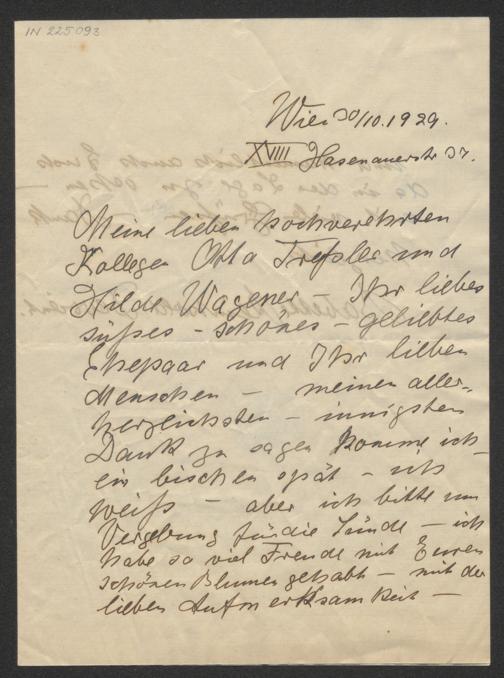 IN 225093
Wien 30/10.1929.
XVIII Hasenauerstr 37.
Meine lieben hochverehrten
Kollegen Otto Treßler und
Hilde Wagener – Ihr liebes
süßes – schönes – geliebtes
Ehepaar und Ihr lieben
Menschen – meinen aller-
herzlichsten – innigsten
Dank zu sagen komme ich
ein bischen spät – ich
weiß – aber ich bitte um
Vergebung für die Sünde – ich
habe so viel Freude mit Euren
schönen Blumen gehabt – mit der
lieben Aufmerksamkeit –